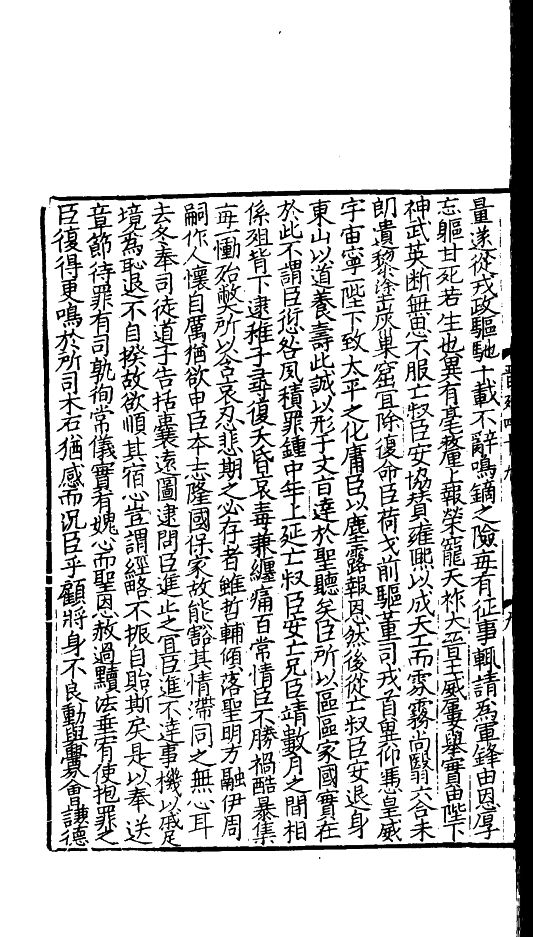 量遂從戎政驅馳十載不辭鳴鏑之險毎有征事輒請爲軍鋒由恩厚
忘軀甘死若生也冀有毫釐上報榮寵天祚大晉王威屢舉實由陛下
神武英断無思不服亡叔臣安協賛雍熈以成天工而雰霧尚翳六合未
朗遺黎塗炭巢窟宜除復命臣荷戈前驅董司戎首冀仰憑皇威
宇宙寧一陛下致太平之化庸臣以塵露報恩然後從亡叔臣安退身
東山以道養壽此誠以形于文言達於聖聽矣臣所以區區家國實在
於此不謂臣愆咎夙積罪鍾中年上延亡叔臣安亡兄臣靖數月之間相
係殂背下逮稚子尋復夭昏哀毒兼纏痛百常情臣不勝禍酷暴集
毎一慟殆弊所以含哀忍悲期之必存者雖哲輔傾落聖明方融伊周
嗣作人懷自厲猶欲申臣本志隆國保家故能豁其情滯同之無心耳
去冬奉司徒道子告括囊遠圖逮問臣進止之宜臣進不達事機以蹙
境爲恥退不自揆故欲順其宿心豈謂經略不振自貽斯戾是以奉送
章節待罪有司執徇常儀實有媿心而聖恩赦過黷法垂宥使抱罪之
臣復得更鳴於所司木石猶感而況臣乎顧將身不良動與釁會謙德